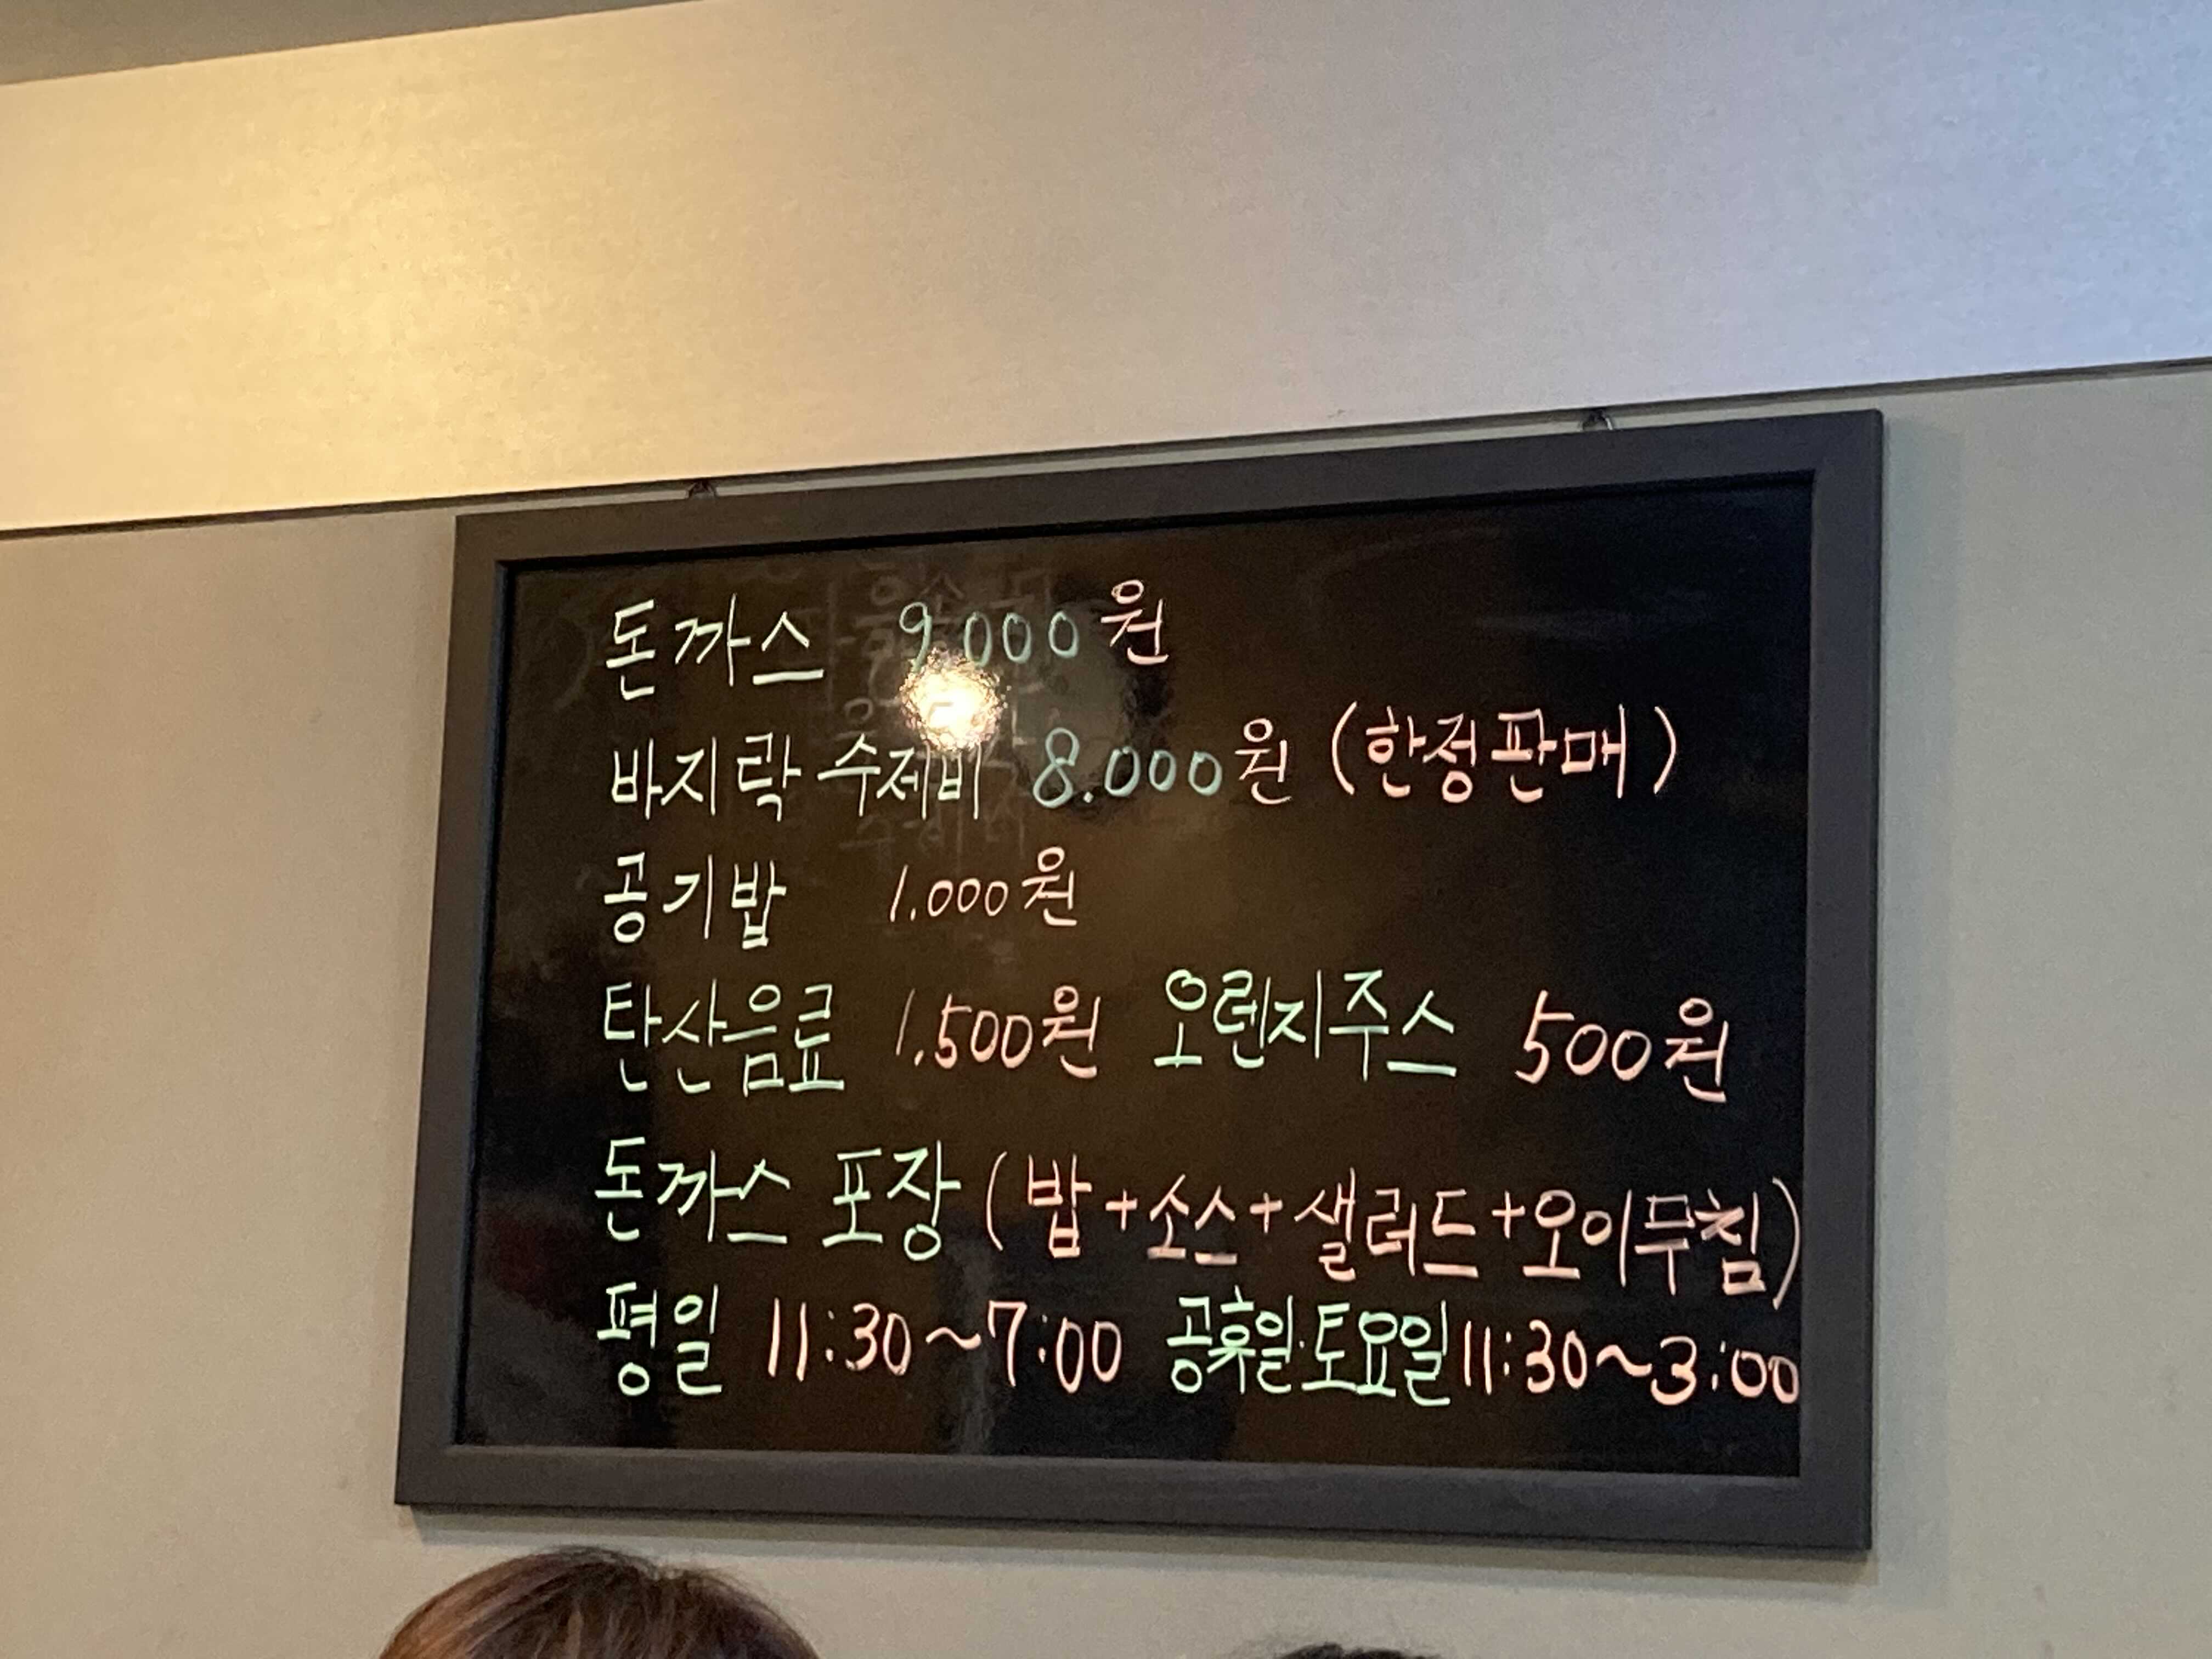 돈까스 9.000원
바지락 수제비 8.000원 (한정판매)
공기밥 1.000원
탄산음료 1.500원 오렌지주스 500원
돈까스 포장 (밥+소스+샐러드+오이무침)
평일 11:30~7:00 공휴일·토요일 11:30~3:00